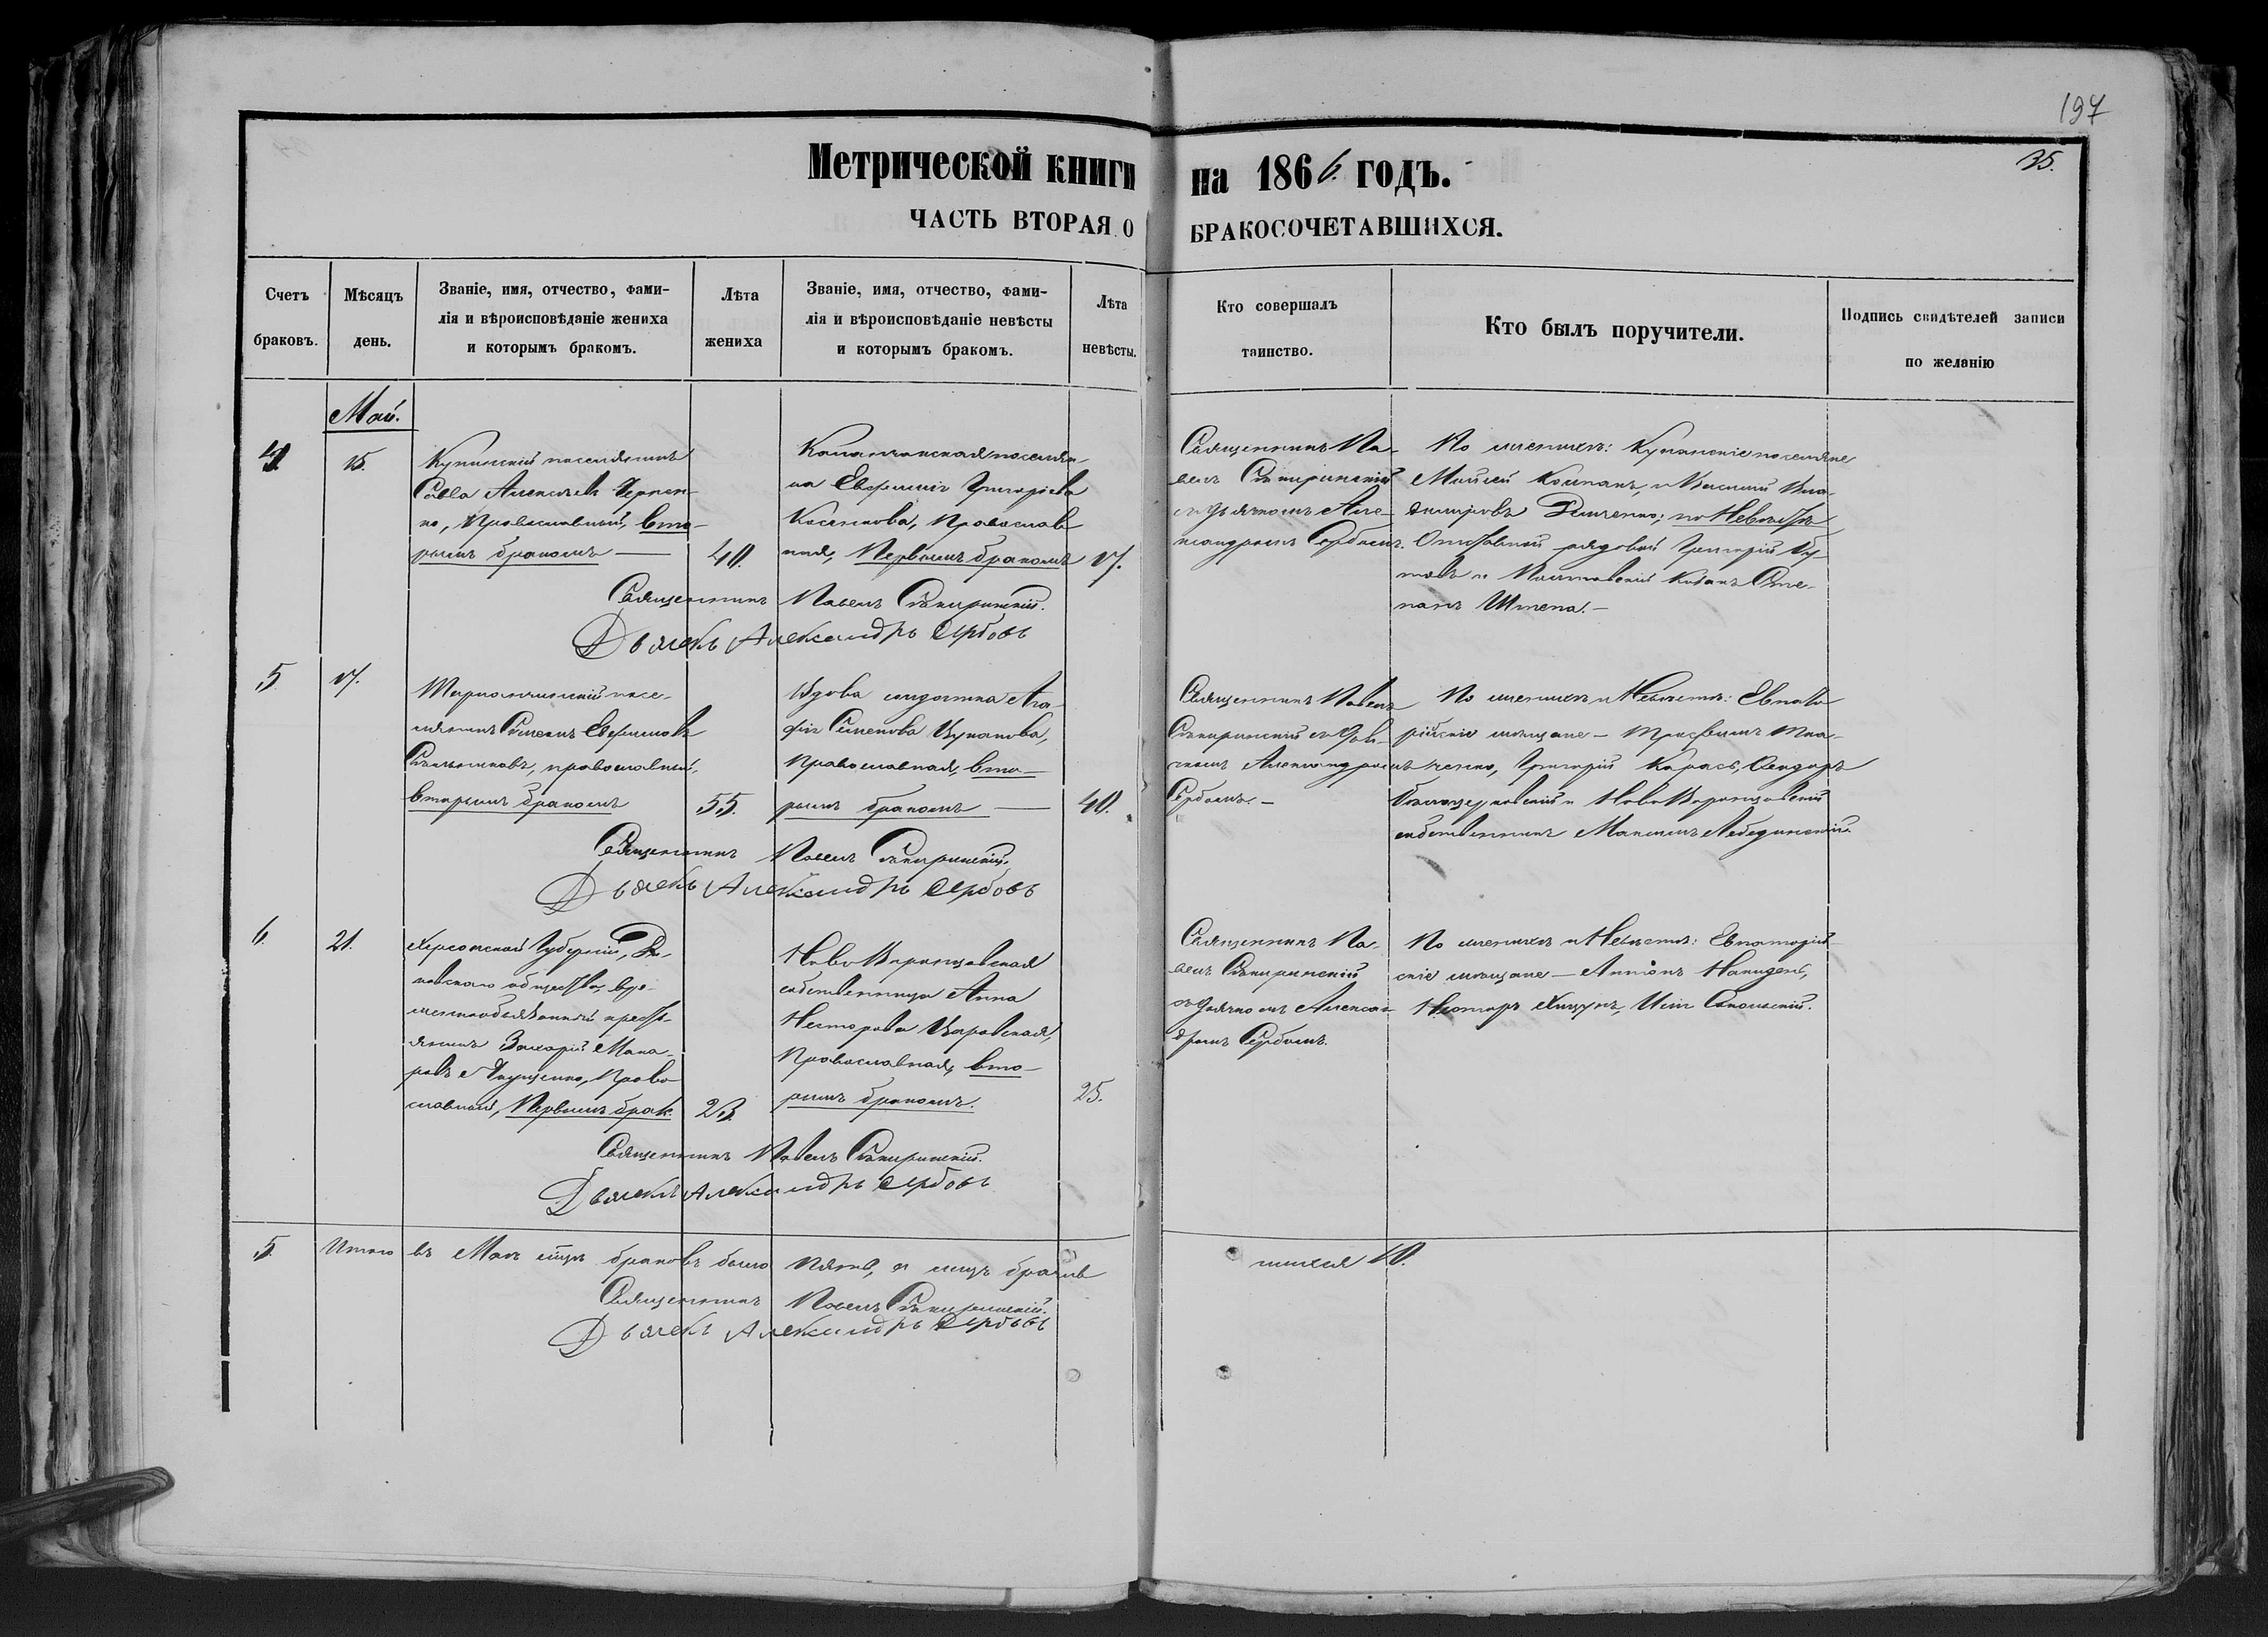 197
35.
Метрической книги на 1866. годъ.
ЧАСТЬ ВТОРАЯ О БРАКОСОЧЕТАВШИХСЯ.
Счетъ браковъ.
Мѣсяцъ день.
Званіе, имя, отчество, фами-
лія и вѣроисповѣданіе жениха
и которымъ бракомъ.
Лѣта жениха
Званіе, имя, отчество, фами-
лія и вѣроисповѣданіе невѣсты
и которымъ бракомъ.
Лѣта невѣсты.
Кто совершалъ таинство.
Кто былъ поручители.
Подпись свидѣтелей записи
по желанію
Май.
4
15.
поселянинъ
Савва Алексѣевъ
Православный, вто-
рымъ бракомъ
40.
поселян-
ка Евфимія Григорьева
Православ
ная, Первымъ бракомъ
17.
Священникъ Па-
велъ Сѣкиринскій
съ дьячкомъ Але-
ксандромъ Сербовымъ.
По женихѣ: поселяне
Моисей и Василій Вла-
димировъ по Невѣстѣ
Отставной рядовой Григорій
и козакъ Сте-
панъ Штепа.
Священникъ Павелъ Сѣкиринскій.
Дьячекъ Александръ Сербовъ
5
17.
посе-
лянинъ Симеонъ Евфимовъ
православный,
вторымъ бракомъ
55.
Вдова солдатка Ага-
фія Семенова Цуканова,
православная, вто-
рымъ бракомъ
40.
Священникъ Павелъ
Сѣкиринскій съ дья-
чкомъ Александромъ
Сербовымъ.
По женихѣ и Невѣстѣ: Евпато
рійскіе мѣщане — Трофимъ Тка-
ченко, Григорій Карась, Феодоръ
Бѣлоцерковскій и НовоВоронцовскій
собственникъ Максимъ Лебединскій.
Священникъ Павелъ Сѣкиринскій.
Дьячекъ Александръ Сербовъ
6.
21.
Херсонской Губерніи,
общества, вре-
меннообязанный кресть-
янинъ Захарій Мака-
ровъ Право
славный, Первымъ брак.
23.
НовоВоронцовская
собственница Анна
Несторова
Православная, вто-
рымъ бракомъ.
25.
Священникъ Па-
велъ Сѣкиринскій
съ дьячкомъ Алексан
дромъ Сербовымъ.
По женихѣ и Невѣстѣ: Евпаторій-
скіе мѣщане — Антонъ
Несторъ Сокольскій.
Священникъ Павелъ Сѣкиринскій.
Дьячекъ Александръ Сербовъ
5.
Итого въ Маѣ мцѣ браковъ было пять, а лицъ брачив
шихся 10.
Священникъ Павелъ Сѣкиринскій.
Дьячекъ Александръ Сербовъ